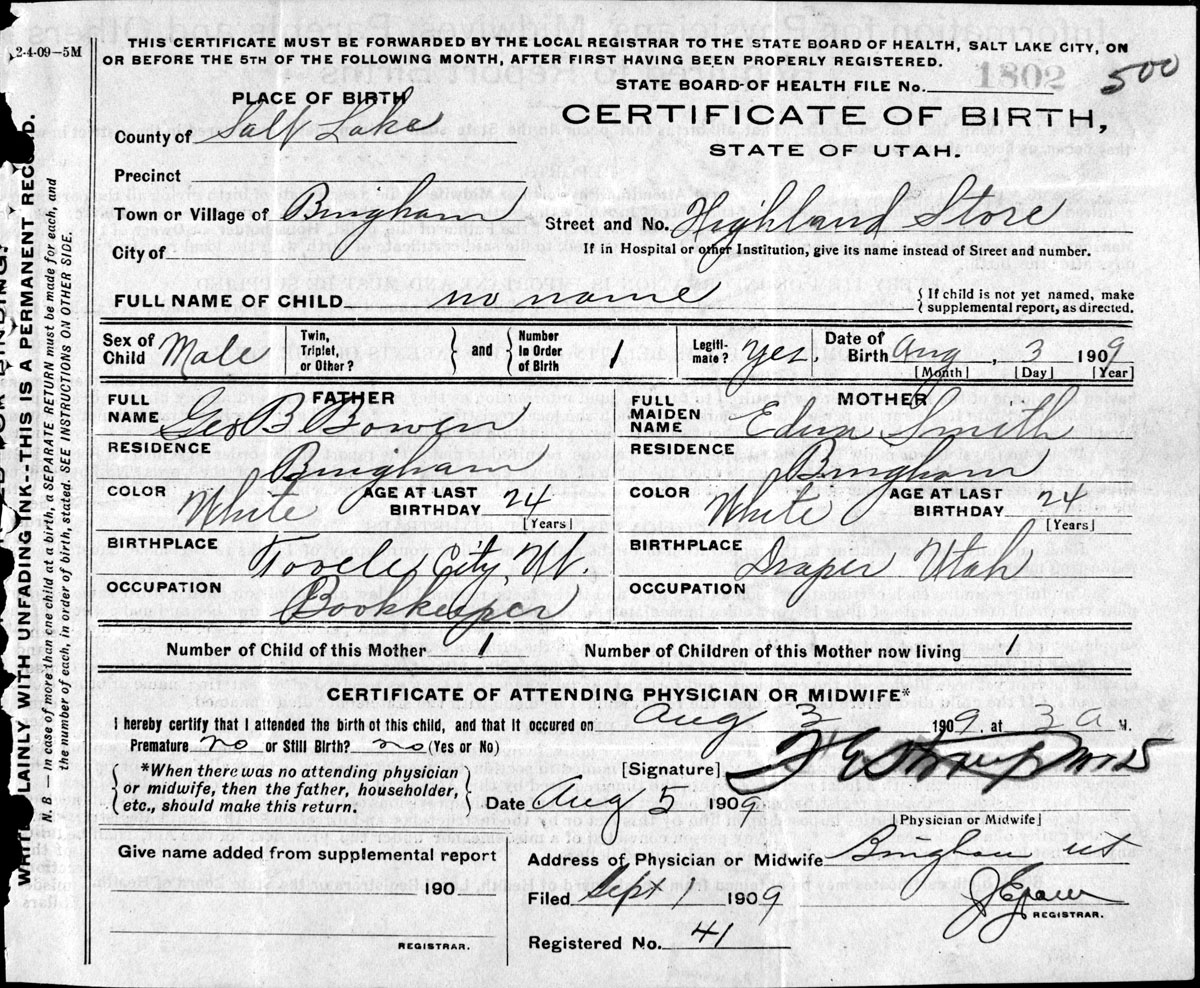 2-4-09—5M
THIS CERTIFICATE MUST BE FORWARDED BY THE LOCAL REGISTRAR TO THE STATE BOARD OF HEALTH, SALT LAKE CITY, ON
OR BEFORE THE 5TH OF THE FOLLOWING MONTH, AFTER FIRST HAVING BEEN PROPERLY REGISTERED.
STATE BOARD OF HEALTH FILE No. 1802 500
PLACE OF BIRTH
CERTIFICATE OF BIRTH,
STATE OF UTAH.
County of Salt Lake
Precinct
Town or Village of Bingham
Street and No. Highland Store
City of
If in Hospital or other Institution, give its name instead of Street and number.
FULL NAME OF CHILD no name {If child is not yet named, make
supplemental report, as directed.
Sex of Child Male Twin, Triplet, or Other? } and { Number in Order of Birth 1 Legiti-mate? Yes. Date of Birth Aug 3 1909
[Month] [Day] [Year]
FATHER
FULL NAME Geo B Bowen
MOTHER
FULL MAIDEN NAME Edna Smith
RESIDENCE Bingham
RESIDENCE Bingham
COLOR White AGE AT LAST BIRTHDAY 24 [Years]
COLOR White AGE AT LAST BIRTHDAY 24 [Years]
BIRTHPLACE Tooele City, Ut.
BIRTHPLACE Draper Utah
OCCUPATION Bookkeeper
OCCUPATION
Number of Child of this Mother 1 Number of Children of this Mother now living 1
CERTIFICATE OF ATTENDING PHYSICIAN OR MIDWIFE*
I hereby certify that I attended the birth of this child, and that it occured on Aug 3 1909, at 3 a M.
Premature no or Still Birth? no (Yes or No)
{*When there was no attending physician
or midwife, then the father, householder,
etc., should make this return.}
[Signature]
Date Aug 5 1909
[Physician or Midwife]
Give name added from supplemental report
190
REGISTRAR.
Address of Physician or Midwife Bingham ut
Filed Sept 1 1909
REGISTRAR.
Registered No. 41
LAINLY WITH UNFADING INK--THIS IS A PERMANENT RECORD.
N. B. — In case of more than one child at a birth, a SEPARATE RETURN must be made for each, and
the number of each, in order of birth, stated. SEE INSTRUCTIONS ON OTHER SIDE.